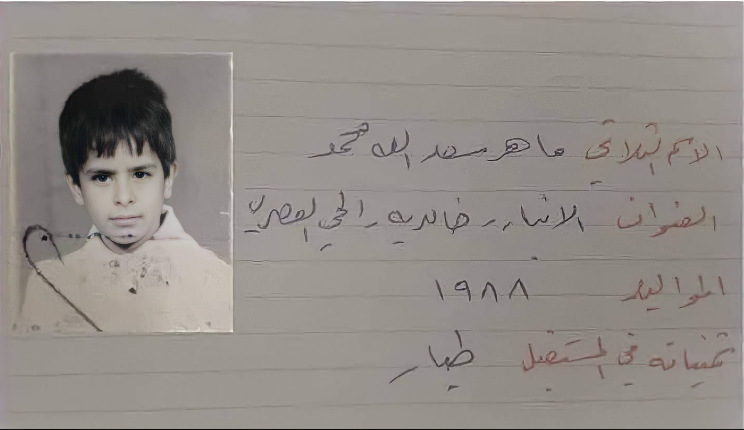 الاسم الثلاثي ماهر سعد الله محمد
العنوان الانبار خالدية الحي العصري
المواليد ١٩٨٨
تمنياته في المستقبل طيار